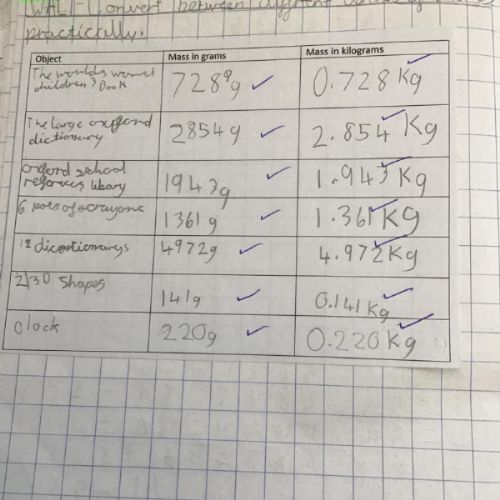 WALT- Convert between different units of
practically.
Object Mass in grams Mass in kilograms
The worlds worst
childrens Book 728g 0.728 Kg
The large oxford
dictionary 2854g 2.854 Kg
oxford school
library 1943g 1.943 Kg
6 pots of crayons 1361g 1.361 KG
12 dicationarys 4972g 4.972 Kg
2/3D Shapes 141g 0.141 Kg
clock 220g 0.220 Kg